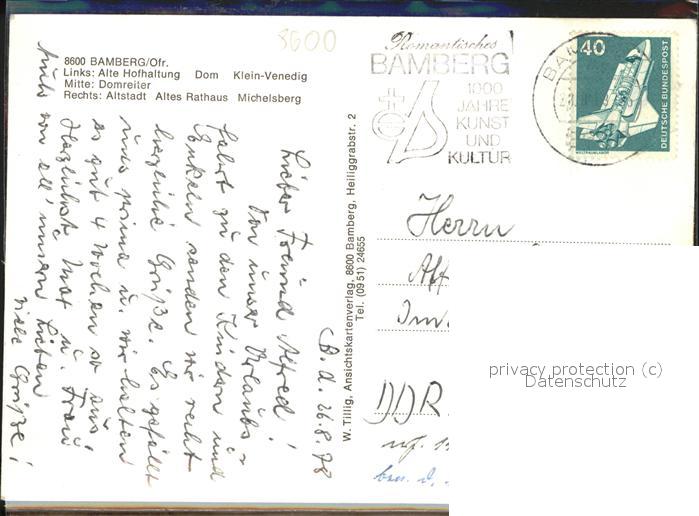 8600
8600 BAMBERG/Ofr.
Links: Alte Hofhaltung Dom Klein-Venedig
Mitte: Domreiter
Rechts: Altstadt Altes Rathaus Michelsberg
Romantisches
BAMBERG
1000
JAHRE
KUNST
UND
KULTUR
40
DEUTSCHE BUNDESPOST
WELTRAUMLABOR
W. Tillig, Ansichtskartenverlag, 8600 Bamberg, Heiliggrabstr. 2
Tel. (09 51) 24655
B. d. 26.8.78
Lieber Freund Alfred!
Von unser Urlaubs-
fahrt zu den Kindern und
Enkeln senden wir recht
herzliche Grüße. Es gefällt
uns prima u. wir halten
es gut 4 Wochen so aus!
Herzlichst Max u. Frau
von all' unsern Lieben
viele Grüße!
Herrn
DDR
privacy protection (c)
Datenschutz